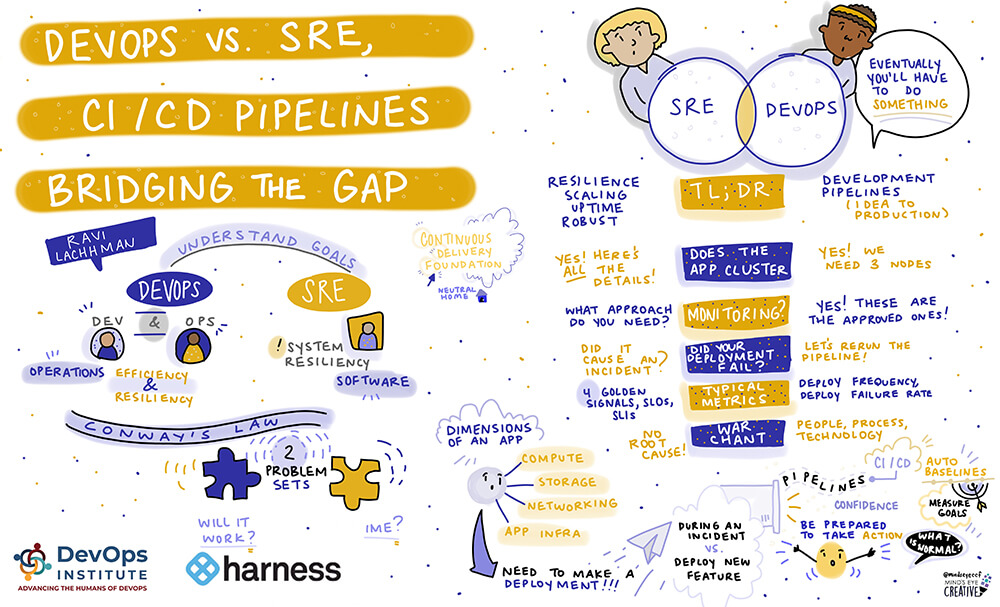 DEVOPS VS. SRE,
CI/CD PIPELINES
BRIDGING THE GAP
RAVI
LACHHMAN
UNDERSTAND GOALS
DEVOPS
SRE
DEV & OPS
OPERATIONS
EFFICIENCY
&
RESILIENCY
! SYSTEM
RESILIENCY
SOFTWARE
CONTINUOUS
DELIVERY
FOUNDATION
NEUTRAL
HOME
CONWAY'S LAW
2
PROBLEM
SETS
WILL IT
WORK?
IME?
DevOps
INSTITUTE
ADVANCING THE HUMANS OF DEVOPS
harness
SRE
DEVOPS
EVENTUALLY
YOU'LL HAVE
TO DO
SOMETHING
RESILIENCE
SCALING
UPTIME
ROBUST
TL;DR
DEVELOPMENT
PIPELINES
(IDEA TO
PRODUCTION)
YES! HERE'S
ALL THE
DETAILS!
DOES THE
APP CLUSTER
YES! WE
NEED 3 NODES
WHAT APPROACH
DO YOU NEED?
MONITORING?
YES! THESE ARE
THE APPROVED ONES!
DID IT
CAUSE AN
INCIDENT?
DID YOUR
DEPLOYMENT
FAIL?
LET'S RERUN THE
PIPELINE!
4 GOLDEN
SIGNALS, SLOS,
SLIS
TYPICAL
METRICS
DEPLOY FREQUENCY,
DEPLOY FAILURE RATE
NO
ROOT
CAUSE!
WAR
CHANT
PEOPLE, PROCESS,
TECHNOLOGY
DIMENSIONS
OF AN APP
COMPUTE
STORAGE
NETWORKING
APP INFRA
NEED TO MAKE A
DEPLOYMENT!!!
DURING AN
INCIDENT
VS.
DEPLOY NEW
FEATURE
PIPELINES
CI/CD
AUTO
BASELINES
CONFIDENCE
MEASURE
GOALS
BE PREPARED
TO TAKE ACTION
WHAT
IS NORMAL?
@mindseyeccf
MIND'S EYE
CREATIVE